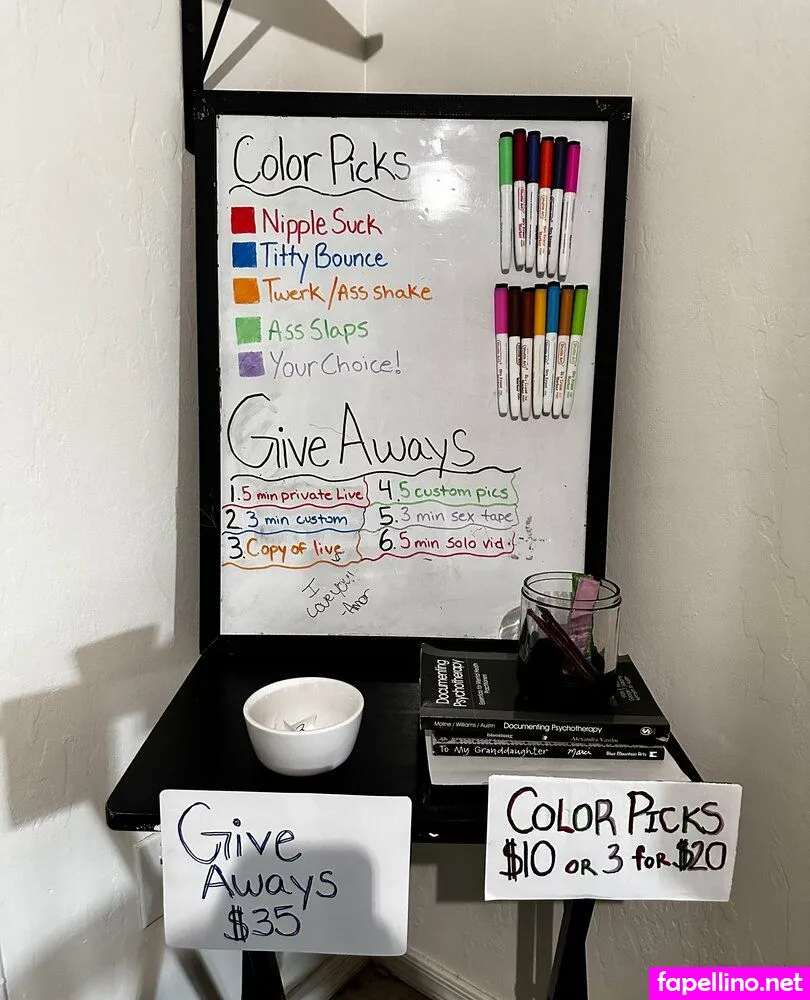 Color Picks
Nipple Suck
Titty Bounce
Twerk/Ass shake
Ass Slaps
Your Choice!
Give Aways
1. 5 min private Live
2. 3 min custom
3. Copy of live
4. 5 custom pics
5. 3 min sex tape
6. 5 min solo vid
I
Love you!
-Amor
Documenting
Psychotherapy
Moline / Williams / Austin Documenting Psychotherapy
blooming Alexandra Vasiliu
To My Granddaughter March Blue Mountain Arts
Give
Aways
$35
COLOR PICKS
$10 OR 3 FOR $20
fapellino.net